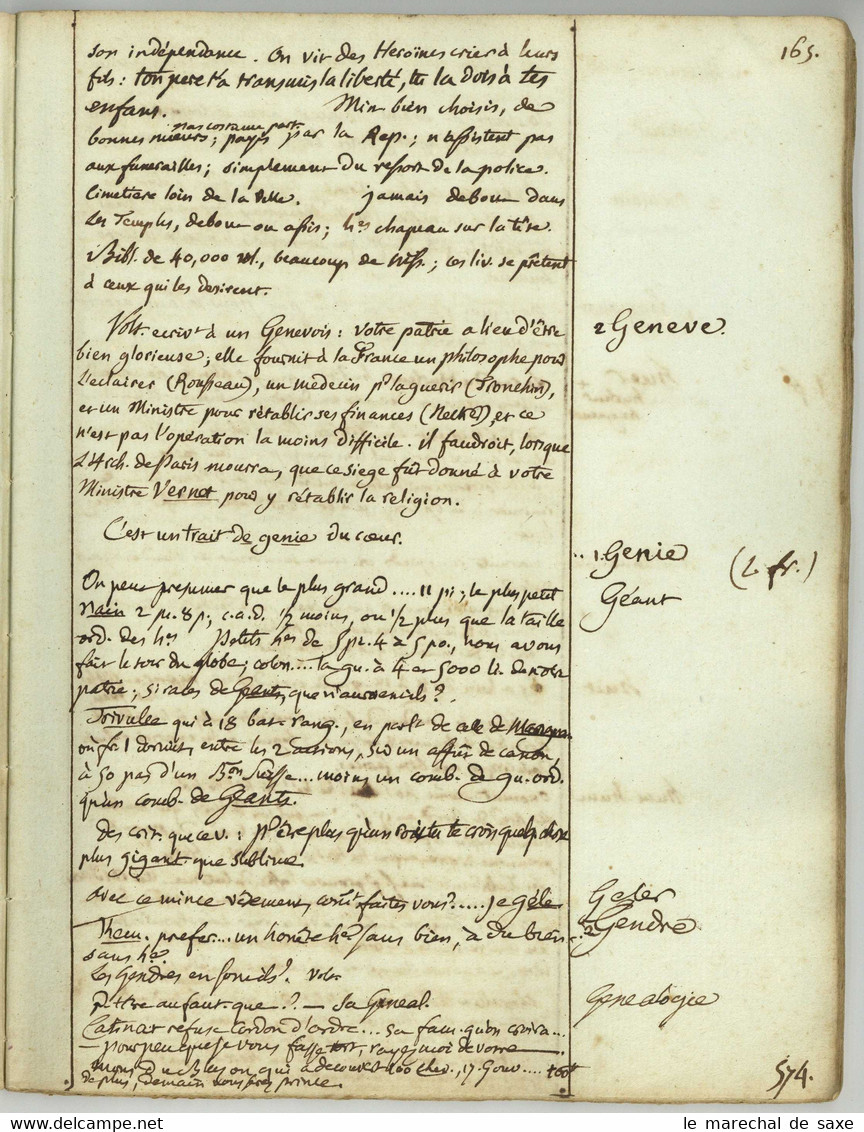 165.
son indépendance. On vit des Heroines crier à leurs
fils: ton pere t'a transmis la liberté, tu la dois à tes
enfans. Min. bien choisis, de
nas costume part.
bonnes mœurs; payés par la Rep.; n'assistent pas
aux funerailles; simplement du ressort de la police.
Cimetiere loin de la ville. jamais debout dans
les Temples, debout ou assis; hes chapeau sur la tête.
Bibl. de 40,000 vol., beaucoup de Mss.; ces liv. se prêtent
à ceux qui les desirent.
Volt. ecrivt à un Genevois: votre patrie a lieu d'être
2 Geneve.
bien glorieuse; elle fournit à la France un philosophe pour
l'eclairer (Rousseau), un medecin pr la guerir (Tronchin),
et un Ministre pour rétablir ses finances (Necker), et ce
n'est pas l'opération la moins difficile. il faudroit, lorsque
l'Arch. de Paris mourra, que ce siege fut donné à votre
Ministre Vernet pour y rétablir la religion.
C'est un trait de genie du cœur.
1. Genie (2 fr.)
On peut presumer que le plus grand .... 11 pi; le plus petit
Géant
nain 2 pi. 8 p; c.a.d. 1/2 moins, ou 1/2 plus que la taille
ord. des hes Petits hes de 5 pi. 4 à 5 po., nous avons
fait le tour du globe; colon.... la gu. à 4 et 5000 li. de notre
patrie; si races de Géants, que n'auroient-ils?
Trivulce qui à 18 bat. rang., en parlt de celle de
où fr. 1 dormit, entre les 2 actions, sur un affut de canon,
à 50 pas d'un Bon Suisse... moins un comb. de gu. ord.
qu'un comb. de Géants.
des ecriv. que ceux: pr être plus qu'un roi tu te crois quelque chose
plus gigant. que sublime.
avec ce mince vêtement, comt faites vous?..... je gèle
Geler
Them. prefer... un honête he sans bien, à du bien
2 Gendre
sans he.
les Gendres en font-ils? Volt.
Genealogie
Catinat refuse Cordon d'ordre... sa fam. qu'on croira...
— pour peu que je vous fasse tort, rayez moi de votre —.
de plus, demain vous serez prince.
574.
le marechal de saxe